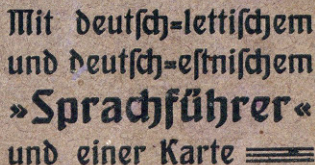 Mit deutſch=lettiſchem
und deutſch=eſtniſchem
»Sprachführer«
und einer Karte